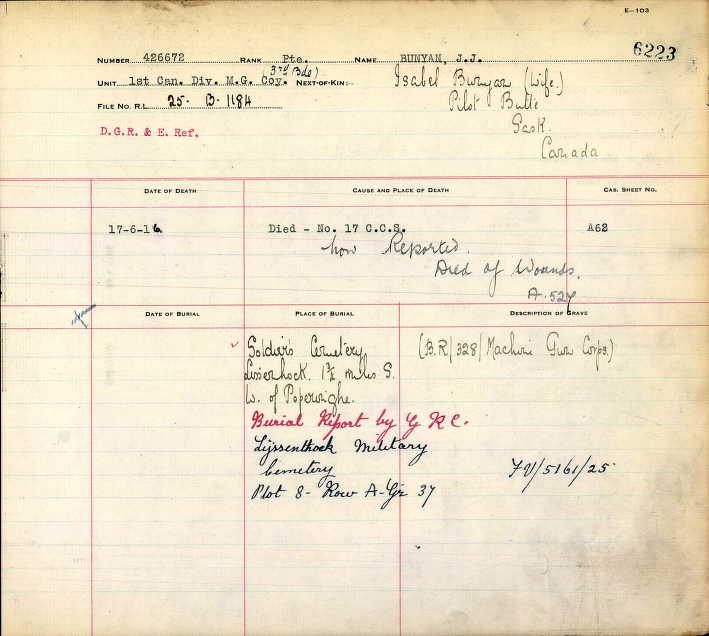 E-103
6223
NUMBER 426672 RANK Pte. NAME BUNYAN, J.J.
3rd Bde)
UNIT 1st Can. Div. M.G. Coy. NEXT-OF-KIN:- Isabel Bunyan (Wife.)
Pilot Butte
Sask.
Canada
FILE NO. R.L. 25- B-1184
D.G.R. & E. Ref.
DATE OF DEATH CAUSE AND PLACE OF DEATH CAS. SHEET NO.
17-6-16. Died - No. 17 C.C.S. A62
now Reported.
Died of Wounds.
A.527
DATE OF BURIAL PLACE OF BURIAL DESCRIPTION OF GRAVE
Soldier's Cemetery (B.R/328/Machine Gun Corps.)
miles S.
W. of Poperinghe.
Burial Report by G R C.
Lijssenthoek Military
Cemetery
Plot 8- Row A-Gr 37
FV/5161/25